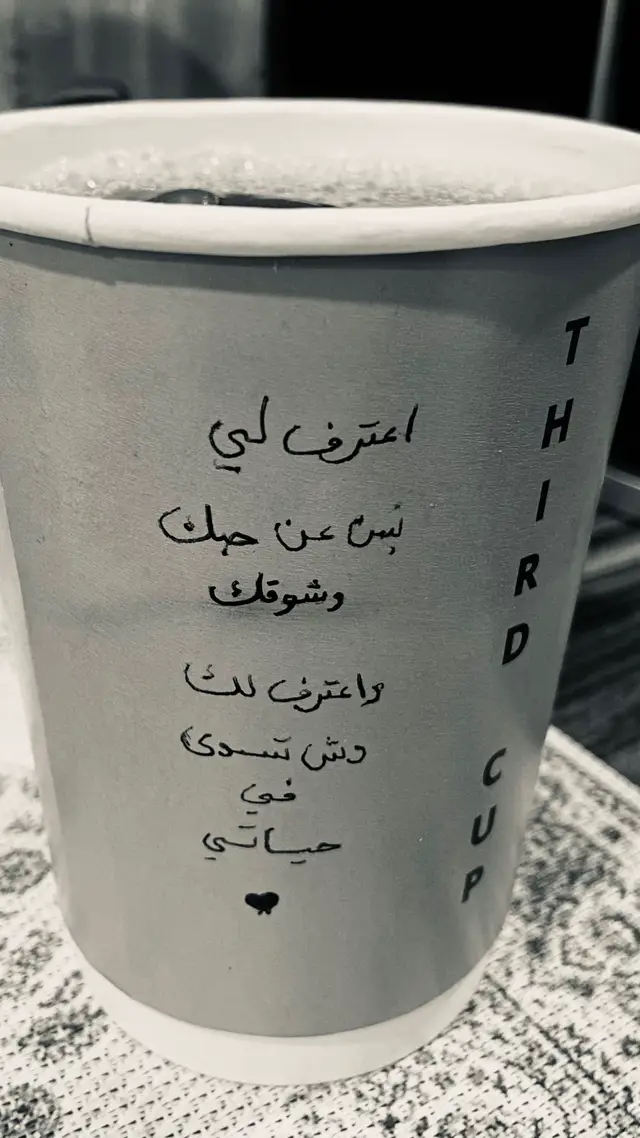 اعترف لي
بس عن حبك
وشوقك
واعترف لك
وش تسوى
في
حياتي
THIRD CUP